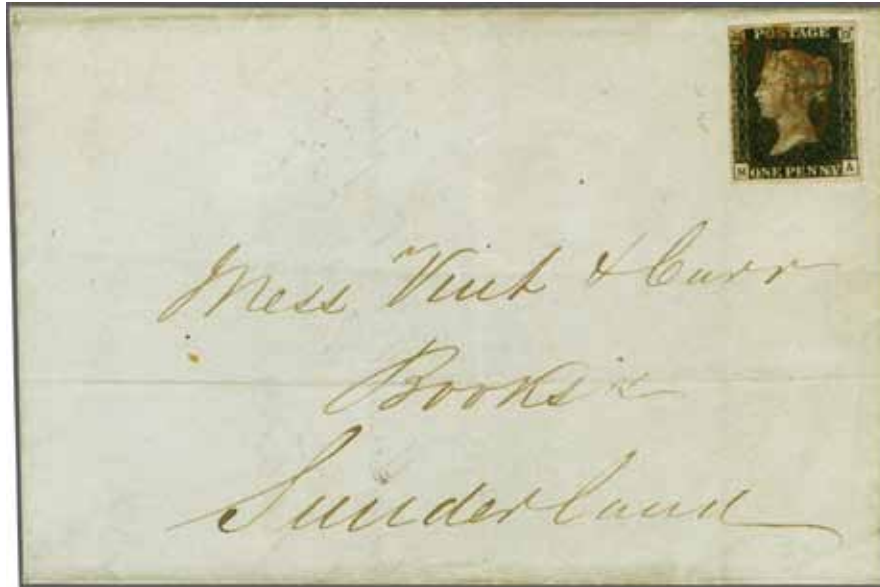 POSTAGE
ONE PENNY A
Mess Vint & Carr
Books
Sunderland